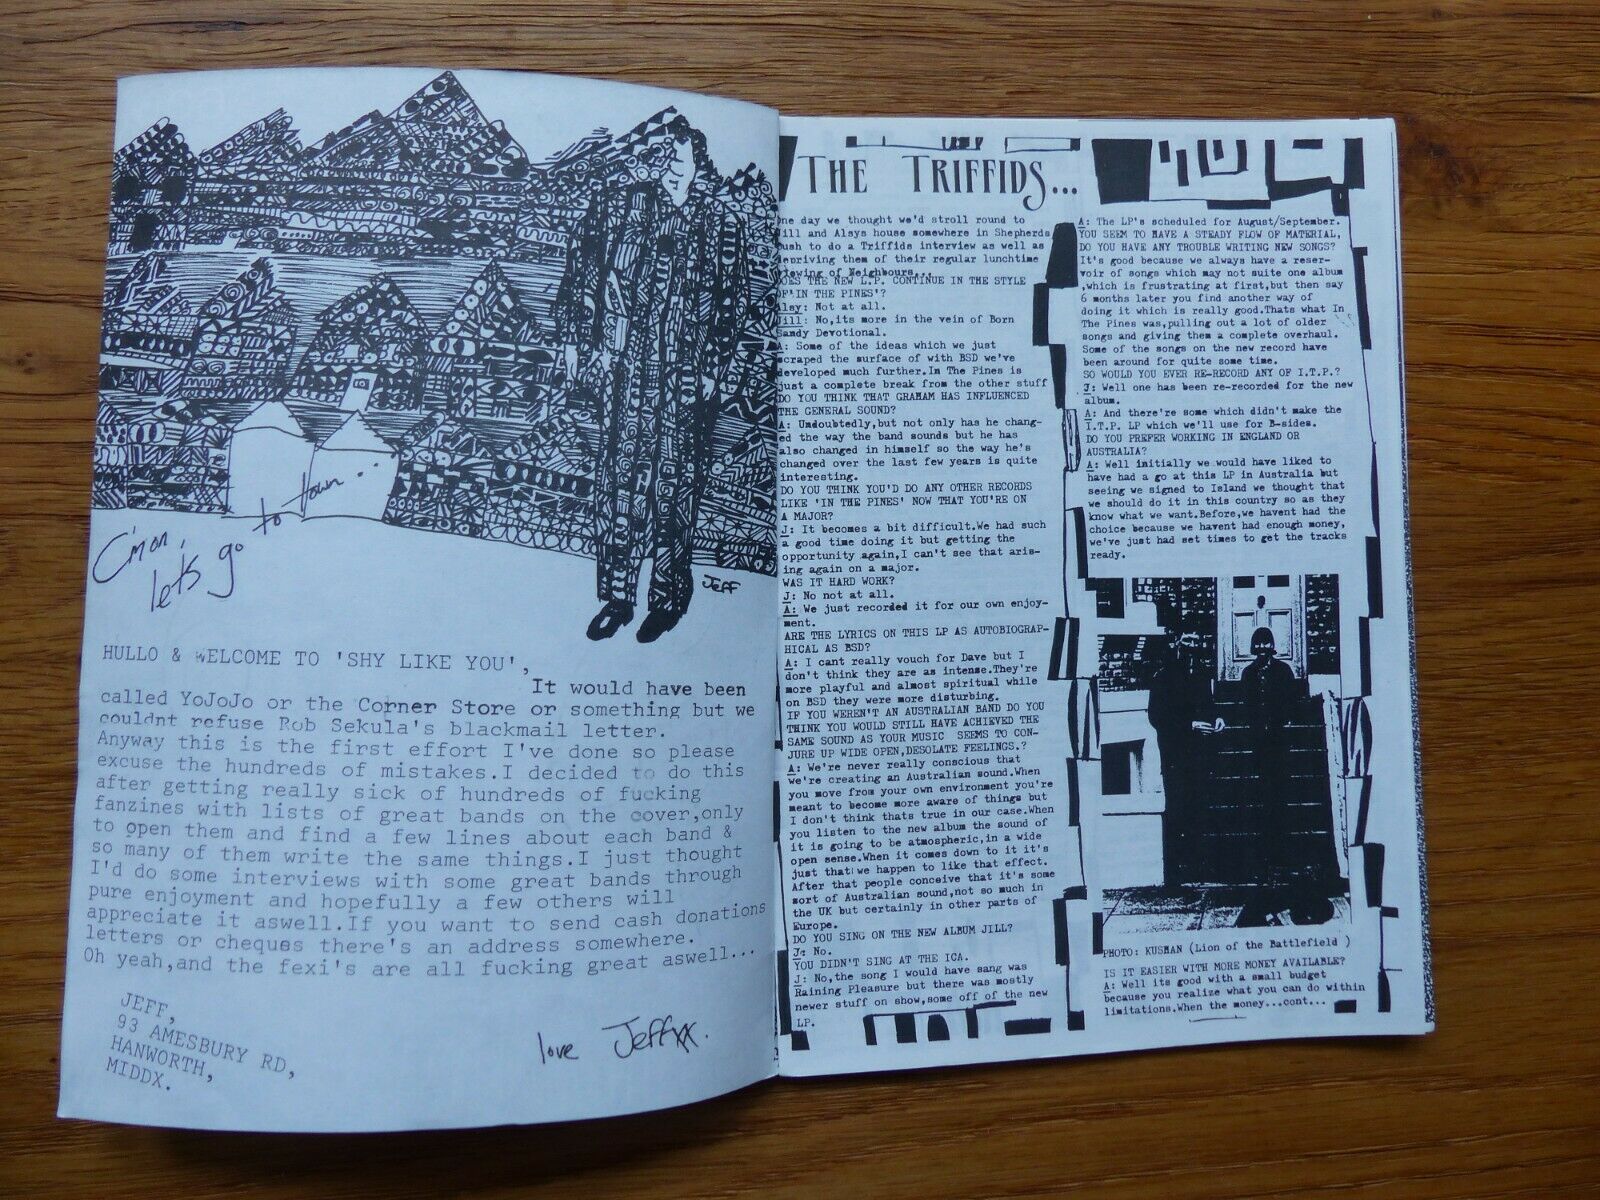 C'mon,
lets go to town...
JEFF
HULLO & WELCOME TO 'SHY LIKE YOU',
It would have been
called YoJoJo or the Corner Store or something but we
couldnt refuse Rob Sekula's blackmail letter.
Anyway this is the first effort I've done so please
excuse the hundreds of mistakes.I decided to do this
after getting really sick of hundreds of fucking
fanzines with lists of great bands on the cover,only
to open them and find a few lines about each band &
so many of them write the same things.I just thought
I'd do some interviews with some great bands through
pure enjoyment and hopefully a few others will
appreciate it aswell.If you want to send cash donations
letters or cheques there's an address somewhere.
Oh yeah,and the fexi's are all fucking great aswell...
JEFF,
93 AMESBURY RD,
HANWORTH,
MIDDX.
love Jeffxx.
THE TRIFFIDS...
ne day we thought we'd stroll round to
ill and Alsys house somewhere in Shepherds
ush to do a Triffids interview as well as
epriving them of their regular lunchtime
iewing of Neighbours...
OES THE NEW L.P. CONTINUE IN THE STYLE
OF 'IN THE PINES'?
Alsy: Not at all.
Jill: No,its more in the vein of Born
Sandy Devotional.
A: Some of the ideas which we just
scraped the surface of with BSD we've
developed much further.In The Pines is
just a complete break from the other stuff
DO YOU THINK THAT GRAHAM HAS INFLUENCED
THE GENERAL SOUND?
A: Undoubtedly,but not only has he chang-
ed the way the band sounds but he has
also changed in himself so the way he's
changed over the last few years is quite
interesting.
DO YOU THINK YOU'D DO ANY OTHER RECORDS
LIKE 'IN THE PINES' NOW THAT YOU'RE ON
A MAJOR?
J: It becomes a bit difficult.We had such
a good time doing it but getting the
opportunity again,I can't see that aris-
ing again on a major.
WAS IT HARD WORK?
J: No not at all.
A: We just recorded it for our own enjoy-
ment.
ARE THE LYRICS ON THIS LP AS AUTOBIOGRAP-
HICAL AS BSD?
A: I cant really vouch for Dave but I
don't think they are as intense.They're
more playful and almost spiritual while
on BSD they were more disturbing.
IF YOU WEREN'T AN AUSTRALIAN BAND DO YOU
THINK YOU WOULD STILL HAVE ACHIEVED THE
SAME SOUND AS YOUR MUSIC SEEMS TO CON-
JURE UP WIDE OPEN,DESOLATE FEELINGS.?
A: We're never really conscious that
we're creating an Australian sound.When
you move from your own environment you're
meant to become more aware of things but
I don't think thats true in our case.When
you listen to the new album the sound of
it is going to be atmospheric,in a wide
open sense.When it comes down to it it's
just that we happen to like that effect.
After that people conceive that it's some
sort of Australian sound,not so much in
the UK but certainly in other parts of
Europe.
DO YOU SING ON THE NEW ALBUM JILL?
J: No.
YOU DIDN'T SING AT THE ICA.
J: No,the song I would have sang was
Raining Pleasure but there was mostly
newer stuff on show,some off of the new
LP.
A: The LP's scheduled for August/September.
YOU SEEM TO HAVE A STEADY FLOW OF MATERIAL,
DO YOU HAVE ANY TROUBLE WRITING NEW SONGS?
It's good because we always have a reser-
voir of songs which may not suite one album
,which is frustrating at first,but then say
6 months later you find another way of
doing it which is really good.Thats what In
The Pines was,pulling out a lot of older
songs and giving them a complete overhaul.
Some of the songs on the new record have
been around for quite some time.
SO WOULD YOU EVER RE-RECORD ANY OF I.T.P.?
J: Well one has been re-recorded for the new
album.
A: And there're some which didn't make the
I.T.P. LP which we'll use for B-sides.
DO YOU PREFER WORKING IN ENGLAND OR
AUSTRALIA?
A: Well initially we would have liked to
have had a go at this LP in Australia but
seeing we signed to Island we thought that
we should do it in this country so as they
know what we want.Before,we havent had the
choice because we havent had enough money,
we've just had set times to get the tracks
ready.
PHOTO: KUSHAN (Lion of the Battlefield )
IS IT EASIER WITH MORE MONEY AVAILABLE?
A: Well its good with a small budget
because you realize what you can do within
limitations.When the money...cont...